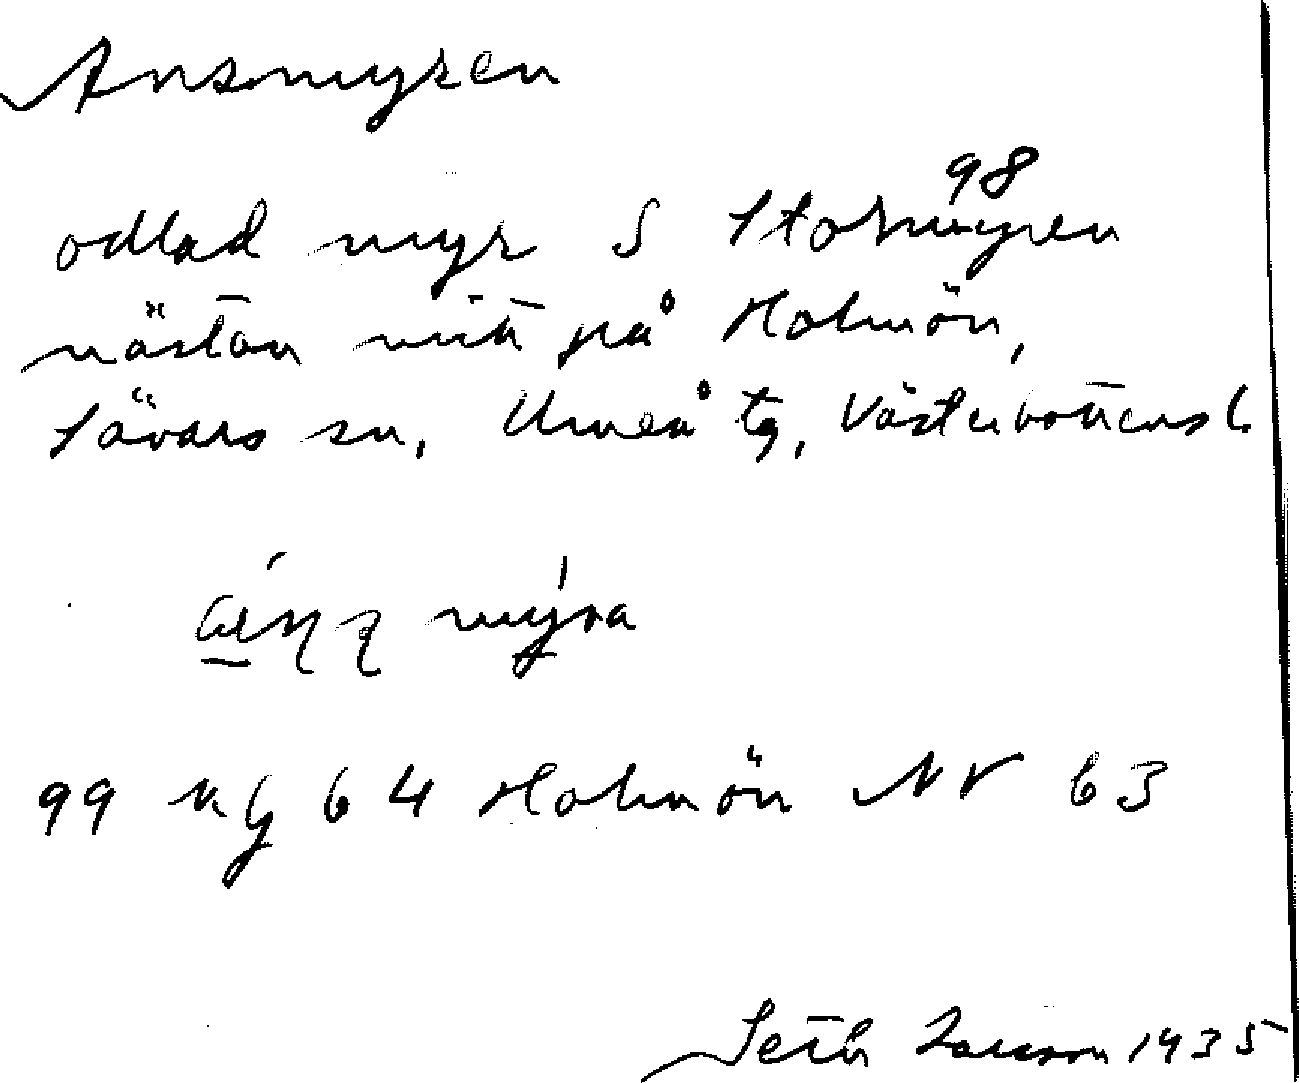 Ansmyren
98
odlad myr S Stormyren
nästan mitt på Holmön,
Sävars sn, Umeå tg, Västerbottens l.
myra
99 ng 64 Holmön NV 63
Seth Larsson 1935